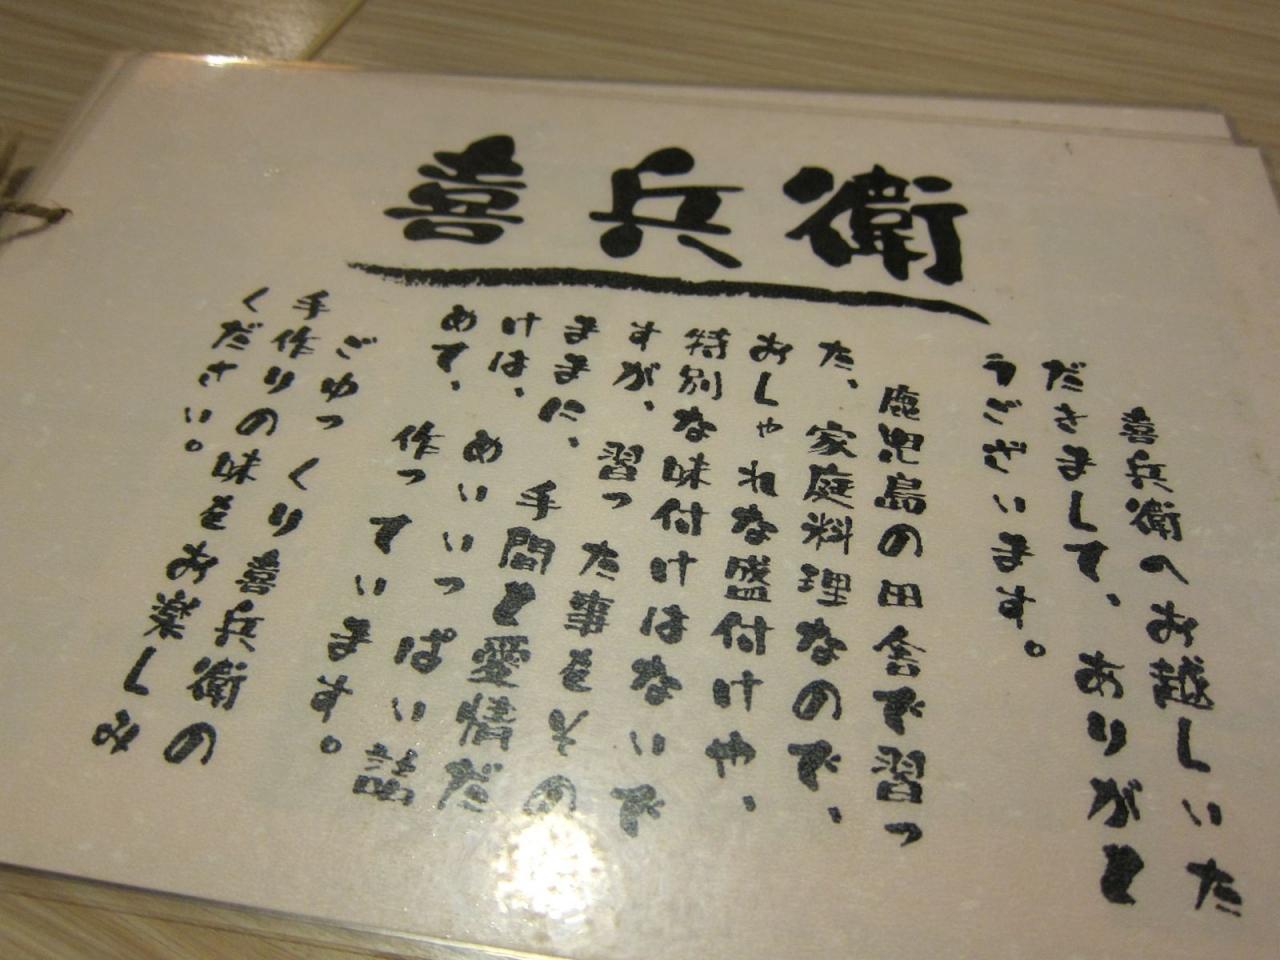 喜兵衛
喜兵衛へお越しいた
だきまして、ありがと
うございます。
鹿児島の田舎で習っ
た、家庭料理なので、
おしゃれな盛付けや、
特別な味付けはないで
すが、習った事をその
ままに、手間と愛情だ
けは、めいいっぱい詰
めて、作っています。
ごゆっくり喜兵衛の
手作りの味をお楽しみ
ください。